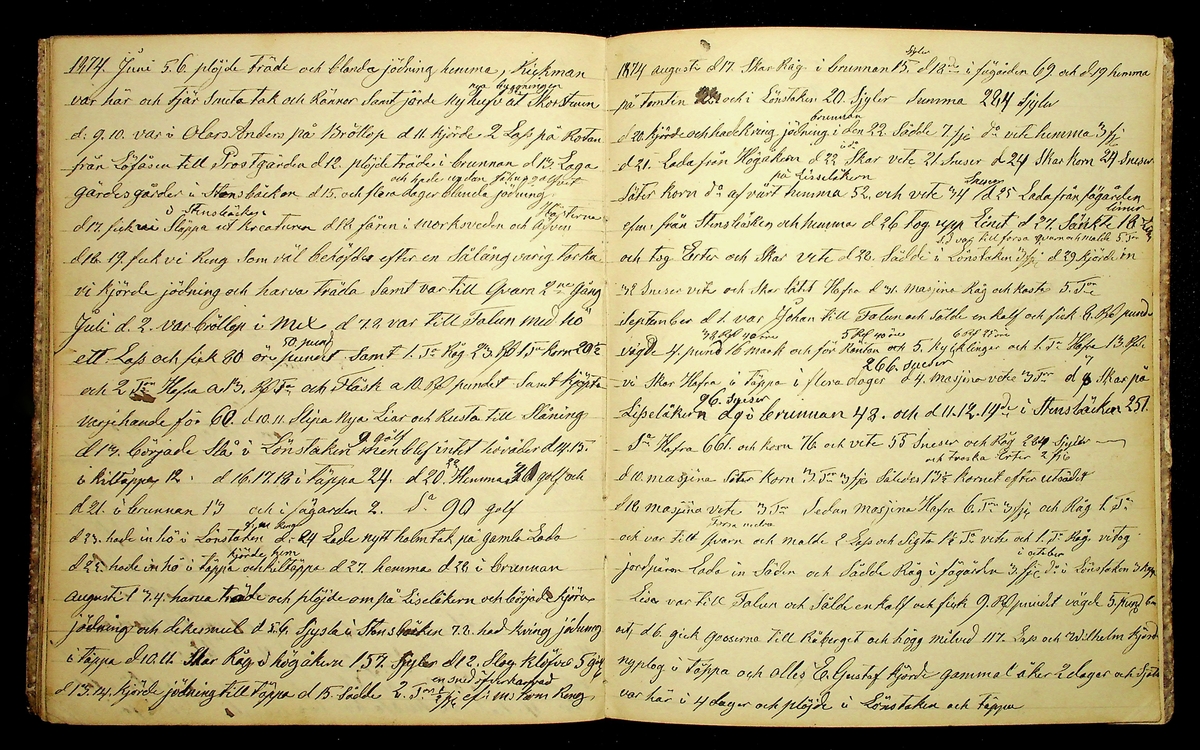 1874. Juni 5.6. plöjde träde och blanda jödning hemma, Rickman
nya byggningen
var här och tjär Sneta tak och Rännor samt jörde ny hufv åt Skorstenen
d: 9.10. var i Olars Anders på Bröllop d 11. Kjörde 2 Lass på Rotan
från Löfåsen till Prostgården d 12. plöjde träde i brunnan d 13. Laga
gärdesgårder i Stensbäcken d 15. och flera dager blanda jödning
i Stensbäcken
d 17. fick vi Släppa ut Kreaturen d 18. fären i morkveden och äfven
d 18. 19. fick vi Reng som väl behöfdes efter en Sålångvarig torka
vi kjörde jödning och harva träda samt var till Qvarn 2ne gång
Juli d. 2. var bröllop i Mex d 7.8. var till Falun med hö
50 pund
ett Lass och fick 80 öre pundet samt 1. Tn Råg 23 Rd 1 Tn Korn 20
och 2 Tnr Hafra a 13. Rd Tn och Fläsk a 10. Rd pundet samt kjöpte
varjehande för 60. d 10.11. Slipa Nya Liar och Rusta till Slåning
9 golf
d 13. började Slå i Lönstaken men blef intet höväder d 14.15.
i Kiltäppa 12. d 16.17.18 i Täppa 24. d 20. Hemma 30 golf och
d 21. i brunnan 13 och i fägården 2. Sa 90 golf
d 23. hade in hö i Lönstaken d. 24 Lade nytt halmtak på gamla Lada
kjörde hem
d 25. hade in hö i täppa och kiltäppa d 27. hemma d 28 i brunnan
augusti 1 3.4. harva träde och plöjde om på Liselåkern och började kjöra
jödning och d 5.6. i Stensbäcken 7.8. had kring jödning
i täppa d 10.11. Skar Råg i högåkern 157. Sjyler d 12. Slog Klöfver 5 golf
d 13.14. kjörde jödning till täppa d 15. Sådde 2. Tnr
1874 augusti d 17. Skar Råg i brunnan 15. d 18 i fägården 69 och d 19 hemma
Sjyler
på tomtin och i Lönstaken 20. Sjyler Summa 284 Sjyler
brunnan
d 20. kjörde och hade kring jödning i den 22. Sådde 7. fjc do vete hemma 3 fjc
d 21. Lada från Högåkern d 22 Skar vete 21 Sneser d 24 Skar korn 24 Sneser
på Liselåkern
Säter korn do afvårt hemma 52. och vete 34 d 25 Lada från fägården
Sneser
från Stensbäcken och hemma d 26 tog upp Linet d 27. Sänkte 18
och tog Erter och Skar vete d 28. Sådde i Lönstaken 3 fjc d 29 kjörde in
32 Sneser vete och Skar litet Hafra d 31. masjina Råg och kasta 5 Tnr
September d 1. var Johan till Falun och Sålde en kalf och fick 6. Rd pund
vägde 4. pund 16 mark och för Räntan och 5. kycklingar och 1. Tn Hafra 13. Rd.
266. Sneser
vi Skar Hafra i täppa i flera dager d 4. masjina vete 3 Tnr d 8 Skar på
96. Sneser
Liselåkern d 9 i brunnan 48. och d 11.12.14 i Stensbäcken 251.
Sa Hafra 661. och korn 76 och vete 55 Sneser och Råg 284 Sjyler
och troska Erter 2 fjc
d 10. masjina Säter korn 3 Tnr 3 fjc Således 13½ kornet efter utsädet
d 16 masjina vete 3 Tnr Sedan masjina Hafra 6 Tnr 3 fjc och Råg 1. Tn
och var till Qvarn och malde 2 Lass och Sigta 1½ Tn vete och 1. Tn Råg vi tog
i october
jordpären Lada in Säden och Sådde Råg i fägården 3. fjc do i Lönstaken 3
Lisa var till Falun och Sålde en kalf och fick 9. Rd pundet vägde 5. pund 6 m
oct, d 6. gick Gosserna till Råberget och högg milved 117. Lass och Wilhelm kjörd
nyplog i täppa och Olles E. Gustaf kjörde gammal åker 2 dagar och
var här i 4 dager och plöjde i Lönstaken och täppa